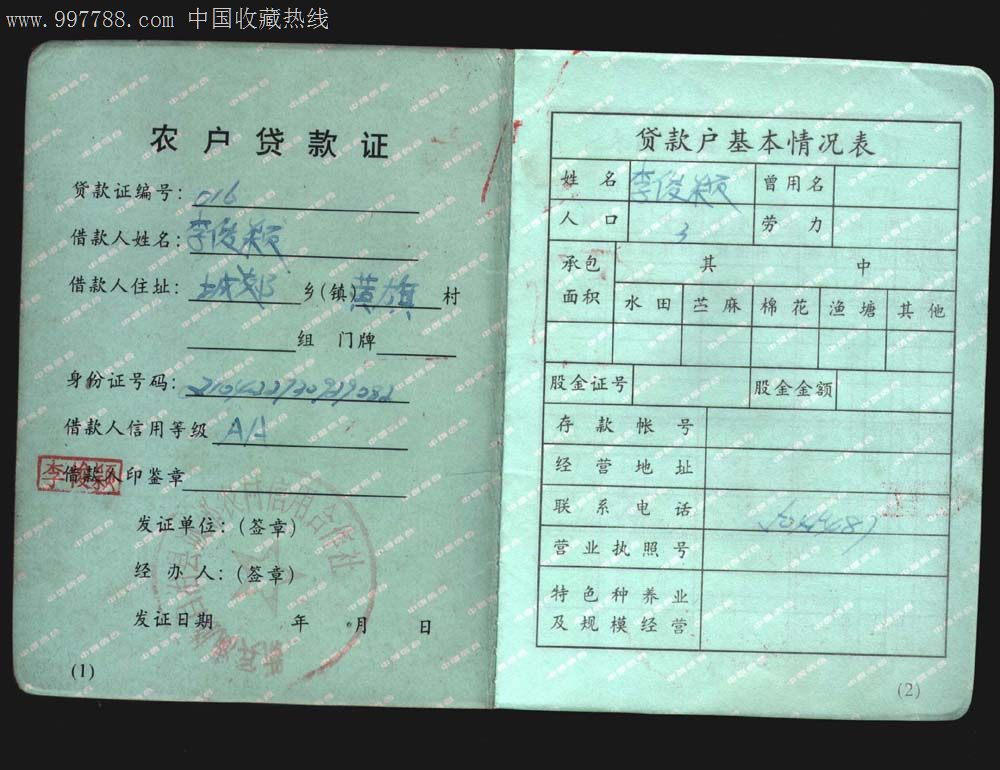 www.997788.com 中国收藏热线
农户贷款证
贷款证编号: 016
借款人姓名: 李俊颖
借款人住址: 城郊 乡(镇) 黄旗 村
组 门牌
身份证号码:
借款人信用等级 AA
借款人印鉴章
李俊颖
发证单位:(签章)
经办人:(签章)
发证日期 年 月 日
(1)
贷款户基本情况表
姓名 李俊颖 曾用名
人口 3 劳力
承包面积 其中
水田 苎麻 棉花 渔塘 其他
股金证号 股金金额
存款帐号
经营地址
联系电话
营业执照号
特色种养业
及规模经营
(2)